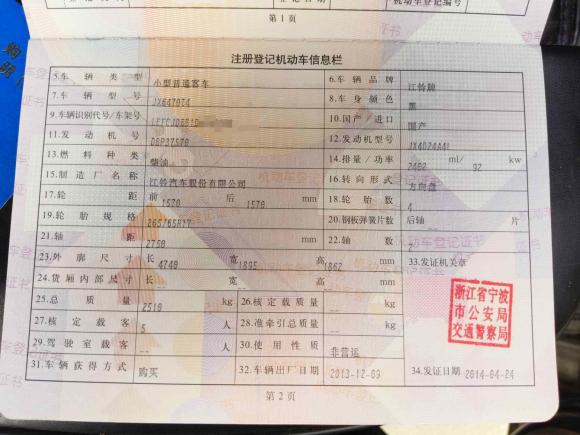 机动车登记编号
第1页
注册登记机动车信息栏
5.车辆类型 小型普通客车 6.车辆品牌 江铃牌
7.车辆型号 JX6470T4 8.车身颜色 黑
9.车辆识别代号/车架号 10.国产/进口 国产
11.发动机号 12.发动机型号 JX4D24A4L
13.燃料种类 柴油 14.排量/功率 2402 ml/ 92 kw
15.制造厂名称 江铃汽车股份有限公司 16.转向形式 方向盘
17.轮距 前 1570 后 1570 mm 18.轮胎数 4
19.轮胎规格 265/65R17 20.钢板弹簧片数 后轴 -- 片
21.轴距 2750 mm 22.轴数 2
23.外廓尺寸 长 4740 宽 1895 高 1862 mm 33.发证机关章
24.货厢内部尺寸 长 -- 宽 -- 高 -- mm
25.总质量 2510 kg 26.核定载质量 -- kg
27.核定载客 5 人 28.准牵引总质量 -- kg
29.驾驶室载客 -- 人 30.使用性质 非营运
31.车辆获得方式 购买 32.车辆出厂日期 2013-12-09 34.发证日期 2014-04-24
浙江省宁波
市公安局
交通警察局
第2页